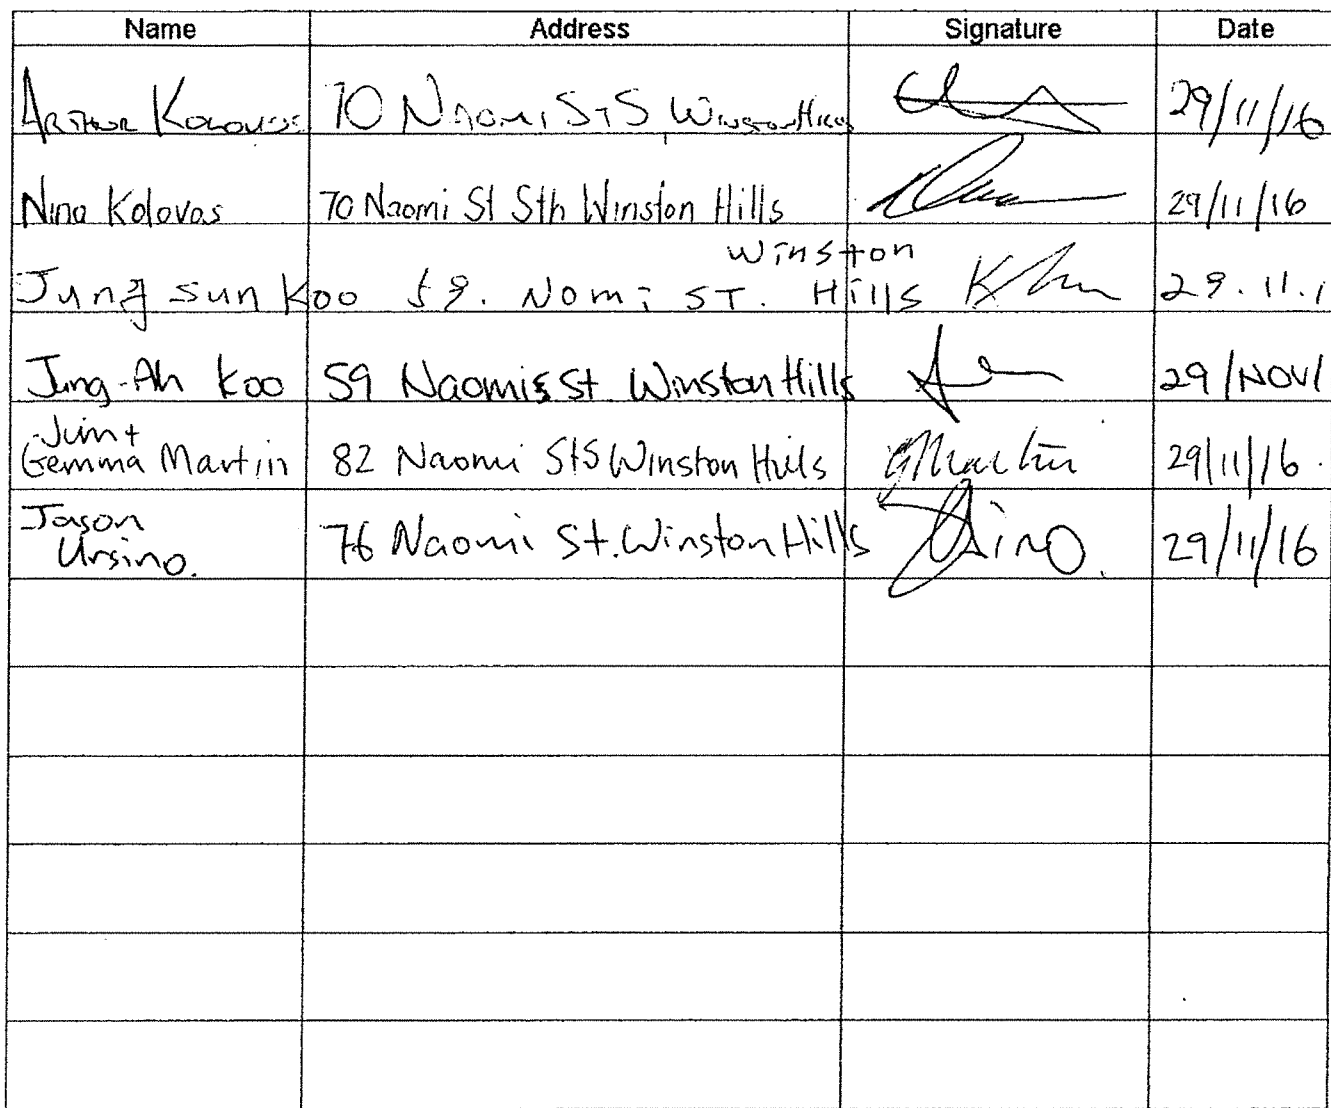 Name Address Signature Date
Arthur Kolovos 70 Naomi St S, Winston Hills 29/11/16
Nina Kolovos 70 Naomi St Sth Winston Hills 29/11/16
Winston
Jung sun Koo 59. Nomi ST. Hills 29.11.1
Jung-Ah Koo 59 Naomi S St Winston Hills 29/NOV/
Jim +
Gemma Martin 82 Naomi St S Winston Hills GMartin 29/11/16.
Jason
Ursino. 76 Naomi St. Winston Hills 29/11/16